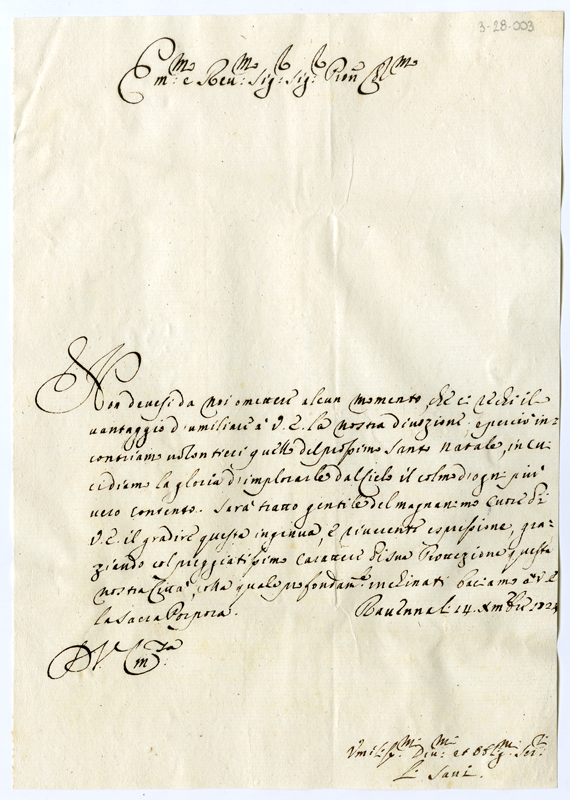 3-28-003
Em:mo e Reu:mo Sig: Sig: Pron Colmo
Non deuesi da noi omettere alcun momento, che ci rechi il
vantaggio d'umiliare à V. E. la nostra diuozione, e perciò in=
contriamo volontieri quello del prossimo Santo Natale, in cu
i diamo la gloria d'implorarle dal Cielo il colmo d'ogni più
vero contento. Sarà tratto gentile del magnanimo Cuore di
V. E. il gradire questa ingenua, e riuerente espressione, gra=
ziando col preggiatissimo Carattere di sua Protezione questa
nostra Città, colla quale profondam:te inchinati baciamo à V. E.
la Sacra Porpora. Rauenna li 14. Xmbre
D. V. Em:za
Vmilis:mi Diu:mi et Obblig:mi Ser:ri
Li Saui.